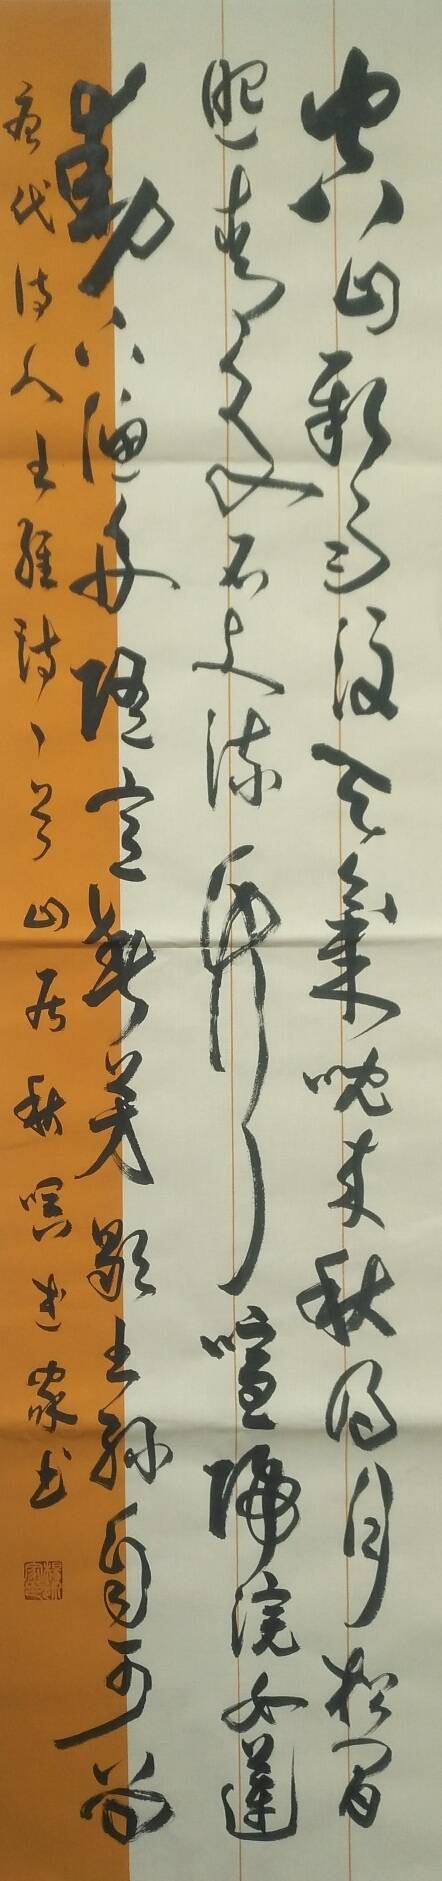 空山新雨後天氣晚来秋明月松間
照清泉石上流竹喧歸浣女蓮
動下漁舟随意春芳歇王孫自可留
唐代诗人王維詩一首山居秋暝家书